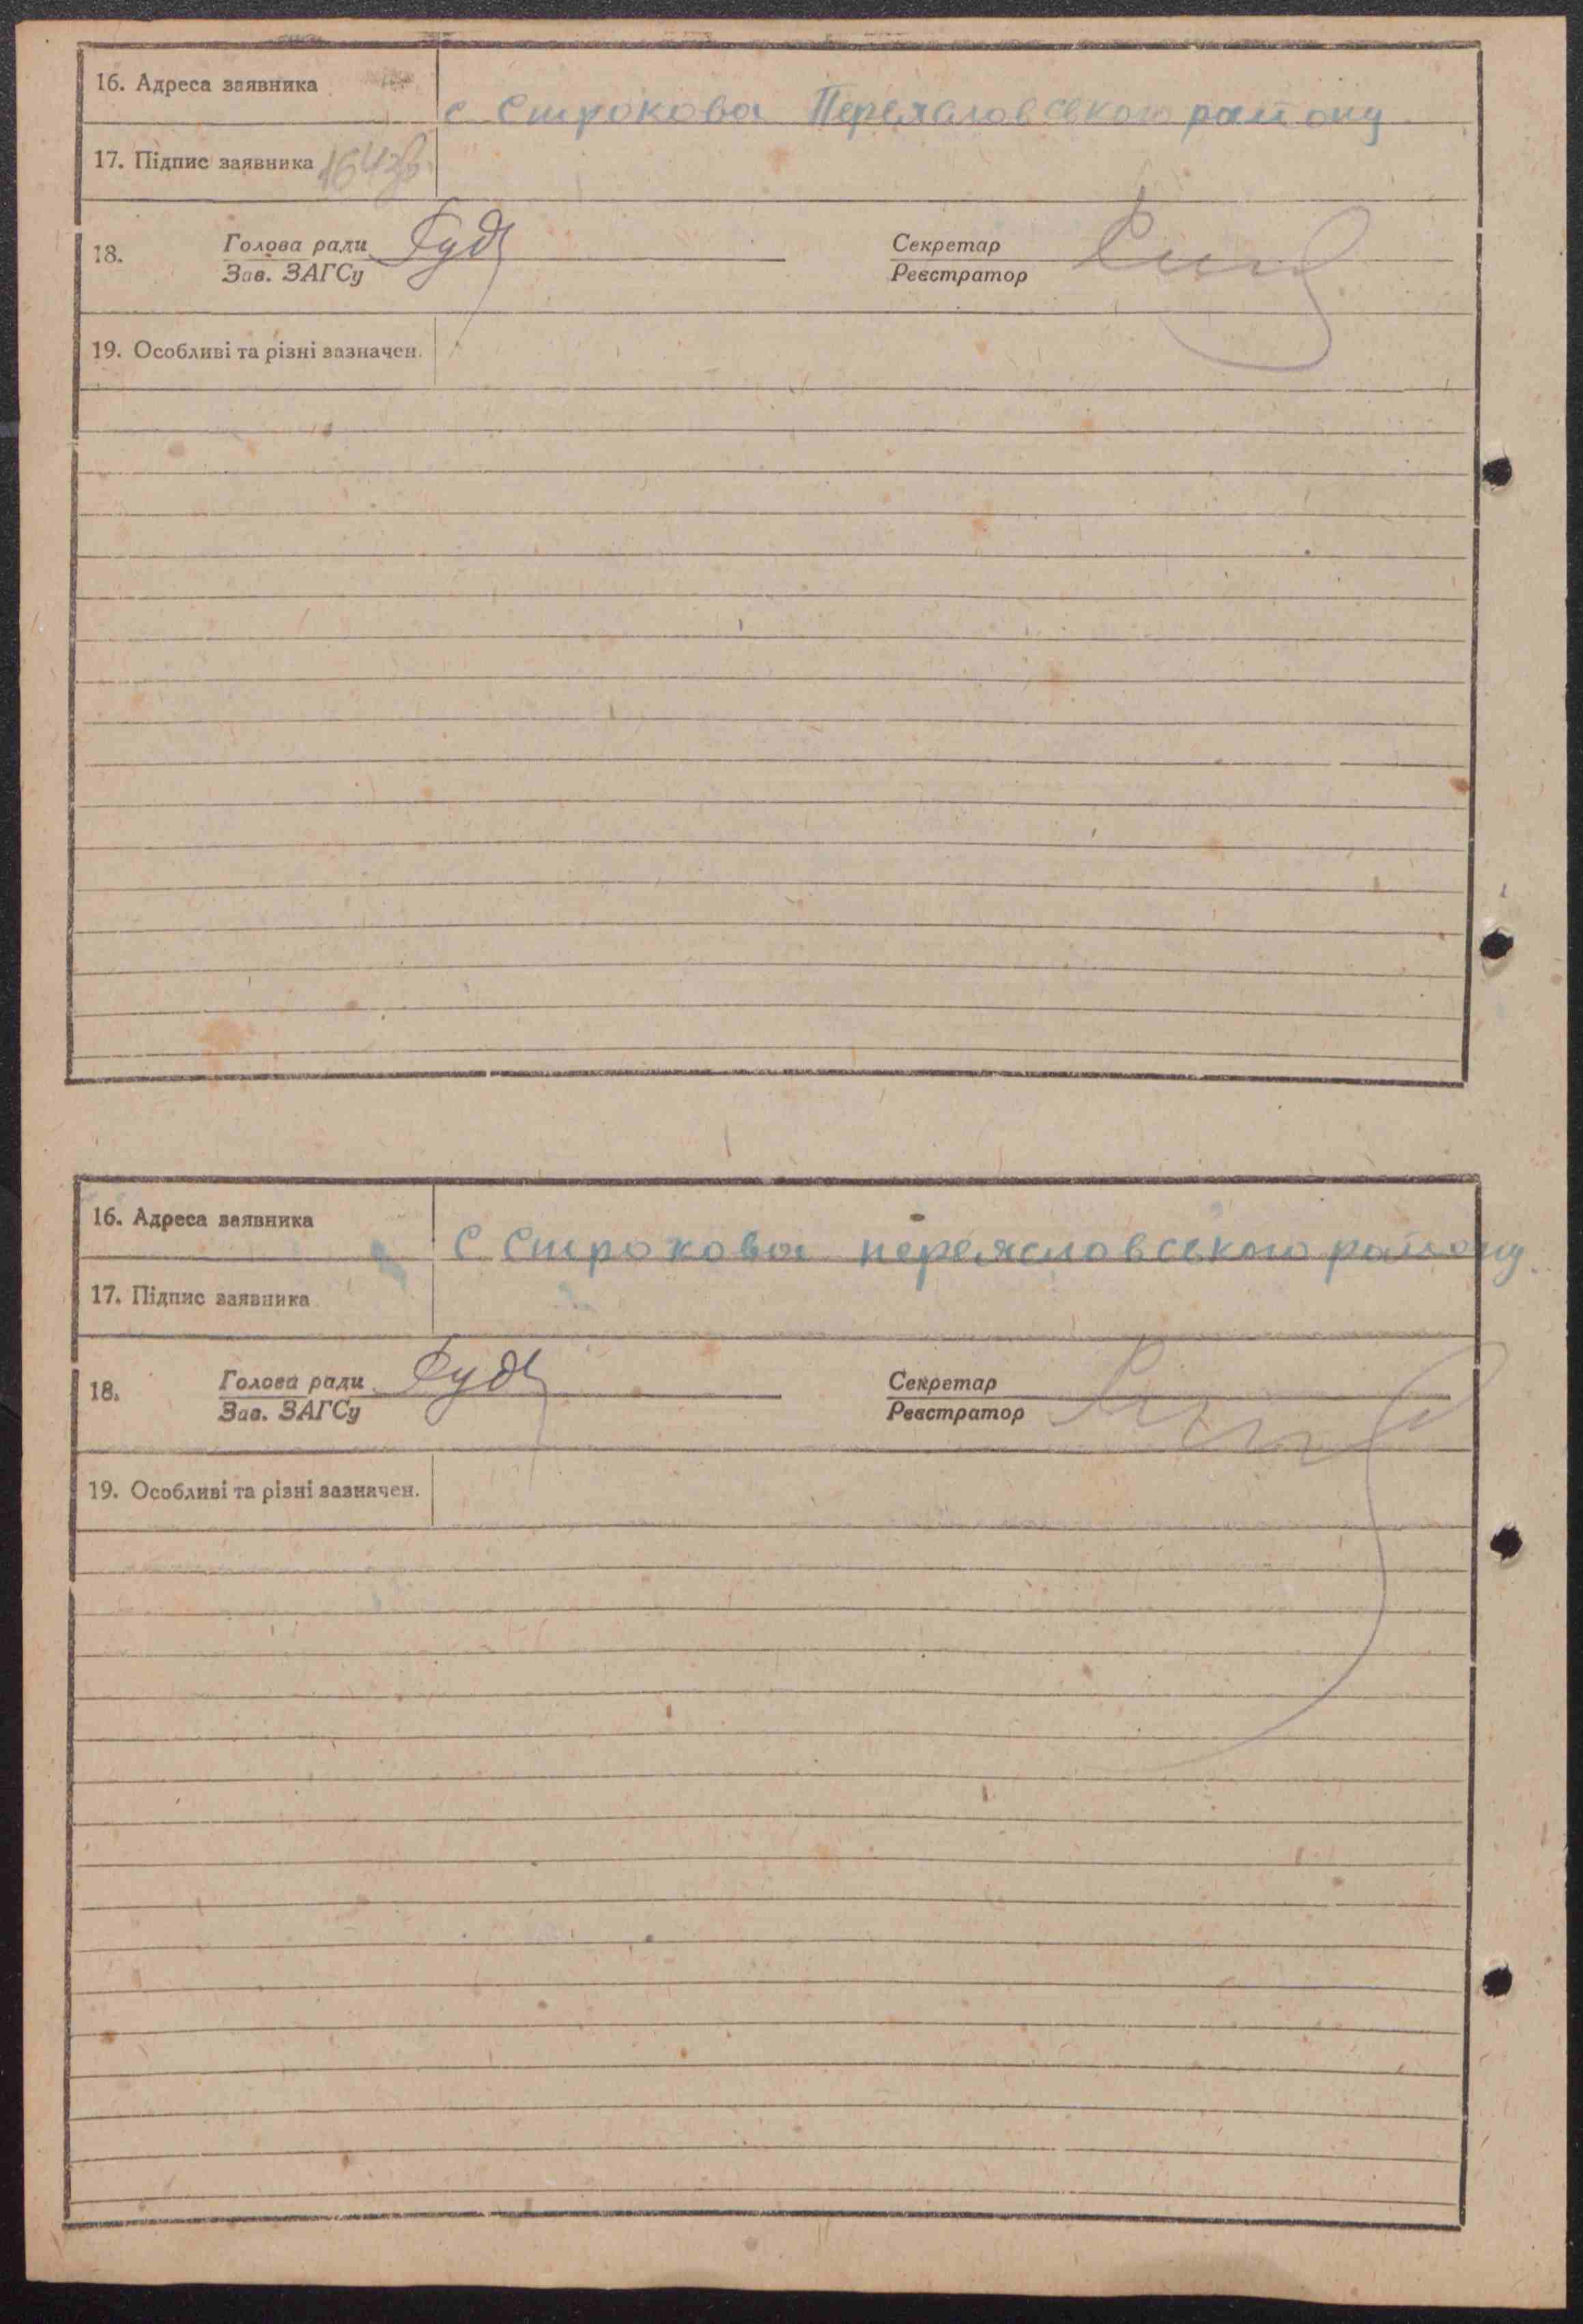 16. Адреса заявника с Строкова Переяславського району
17. Підпис заявника 164зв.
18. Голова ради Секретар
Зав. ЗАГСу Реєстратор
19. Особливі та різні зазначен.
16. Адреса заявника с Строкова переясловського району
17. Підпис заявника
18. Голова ради Секретар
Зав. ЗАГСу Реєстратор
19. Особливі та різні зазначен.